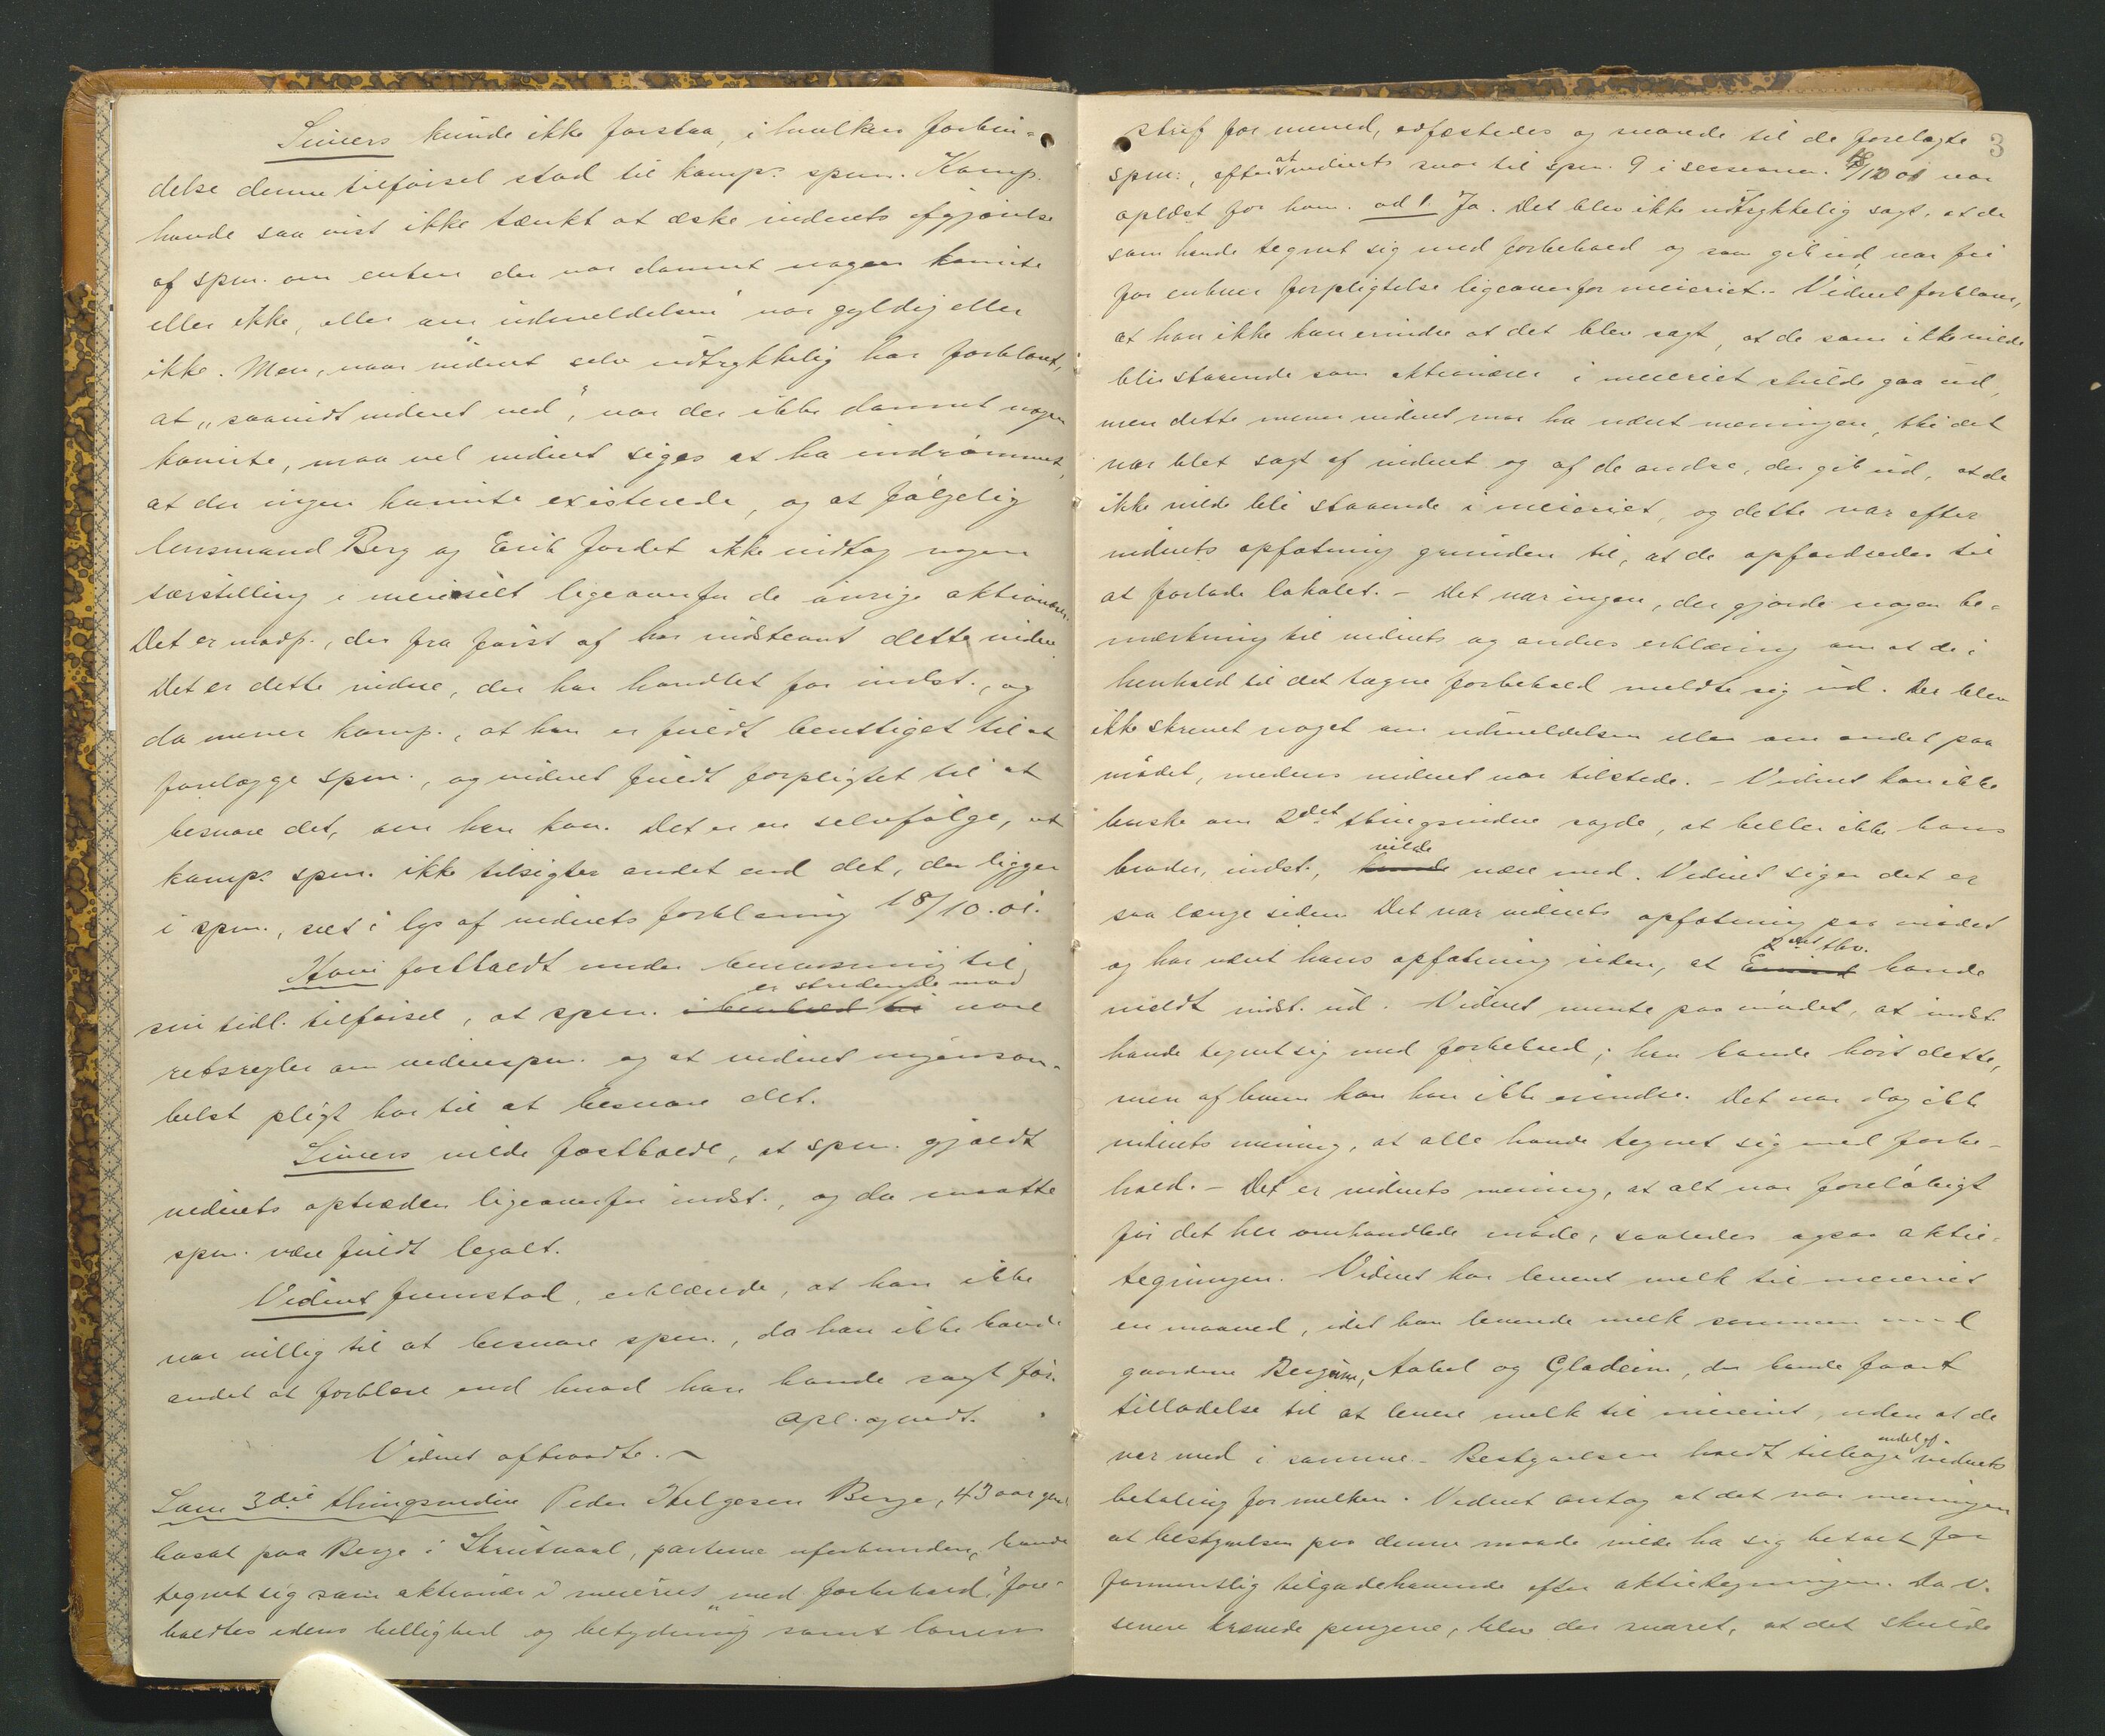 Siviers kunde ikke forstaa, i hvilken forbin-
delse denne tilførsel stod til komp.s spm. Komp.
havde saa vist ikke tænkt at æske vidnets afgjørelse
af spm. om enten der var dannet nogen komite
eller ikke, eller om "udmeldelsen" var gyldig eller
ikke. Men, naar vidnet selv udtrykkelig har forklaret,
at "saavidt vidnet ved", var der ikke dannet nogen
komite, maa vel vidnet siges at ha indrømmet,
at der ingen komite existerede, og at følgelig
lensmand Berg og Erik Jordet ikke indtog nogen
særstilling i meieriet ligeoverfor de øvrige aktionærer.
Det er modp., der fra først af har indstevnt dette vidne.
Det er dette vidne, der har handlet for indst., og
da mener komp., at han er fuldt berettiget til at
forelægge spm., og vidnet fuldt forpligtet til at
besvare det, om han kan. Det er en selvfølge, at
komp.s spm. ikke tilsigter andet end det, der ligger
i spm., set i lys af vidnets forklaring 18/10.01.
Hovi fastholdt under henvisning til
er stridende mod
sin tidl. tilførsel, at spm. i henhold til vore
retsregler om vidnespm. og at vidnet ingensom-
helst pligt har til at besvare det.
Siviers vilde fastholde, at spm. gjældt
vidnets optræden ligeoverfor indst., og da maatte
spm. være fuldt legalt.
Vidnet fremstod, erklærede, at han ikke
var villig til at besvare spm., da han ikke havde
andet at forklare end hvad han havde sagt før.
Opl. og vedt.
Vidnet aftraadte. –
Som 3die thingsvidne Peder Helgesen Berge, 43 aar gml.
bosat paa Berge i Skrutvaal, parterne uforbunden, havde
tegnet sig som aktionær i meieriet "med forbehold", fore-
holdtes edens hellighed og betydning samt lovens
3
straf for mened, edfæstedes og svarede til de forelagte
spm., efter at vidnets svar til spm. 9 i sessionen 18/10 01 var
oplæst for ham. ad 1. Ja. Det blev ikke udtrykkelig sagt, at de
som havde tegnet sig med forbehold og som gik ud, var fri
for enhver forpligtelse ligeoverfor meieriet. – Vidnet forklarer,
at han ikke kan erindre at det blev sagt, at de som ikke vilde
bli staaende som aktionærer i meieriet skulde gaa ud,
men dette mener vidnet maa ha været meningen, thi det
var blet sagt af vidnet og af de andre, der gik ud, at de
ikke vilde bli staaende i meieriet, og dette var efter
vidnets opfatning grunden til, at de opfordredes til
at forlade lokalet. – Det var ingen, der gjorde nogen be-
mærkning til vidnets og andres erklæring om at de i
henhold til det tagne forbehold meldte sig ud. Der blev
ikke skrevet noget om udmeldelsen eller om andet paa
mødet, medens vidnet var tilstede. – Vidnet kan ikke
huske om 2det thingsvidne sagde, at heller ikke hans
vilde
broder, indst., havde være med. Vidnet siger det er
saa længe siden. Det var vidnets opfatning paa mødet
2det thv.
og har været hans opfatning siden, at havde
meldt indst. ud. Vidnet mente paa mødet, at indst.
havde tegnet sig med forbehold; han havde hørt dette,
men af hvem kan han ikke erindre. Det var dog ikke
vidnets mening, at alle havde tegnet sig med forbe-
hold. – Det er vidnets mening, at alt var foreløbigt
før det her omhandlede møde, saaledes ogsaa aktie-
tegningen. Vidnet har levert melk til meieriet
en maaned, idet han leverede melk sammen med
gaardene Bergene, Aabol og Gladeim, der havde faaet
tilladelse til at levere melk til meieriet, uden at de
var med i samme. – Bestyrelsen holdt tilbage endel af vidnets
betaling for melken. Vidnet antog at det var meningen
at bestyrelsen paa denne maade vilde ha sig betalt for
formentlig tilgodehavende efter aktietegningen. Da v.
senere krævede pengene, blev der svaret, at det skulde